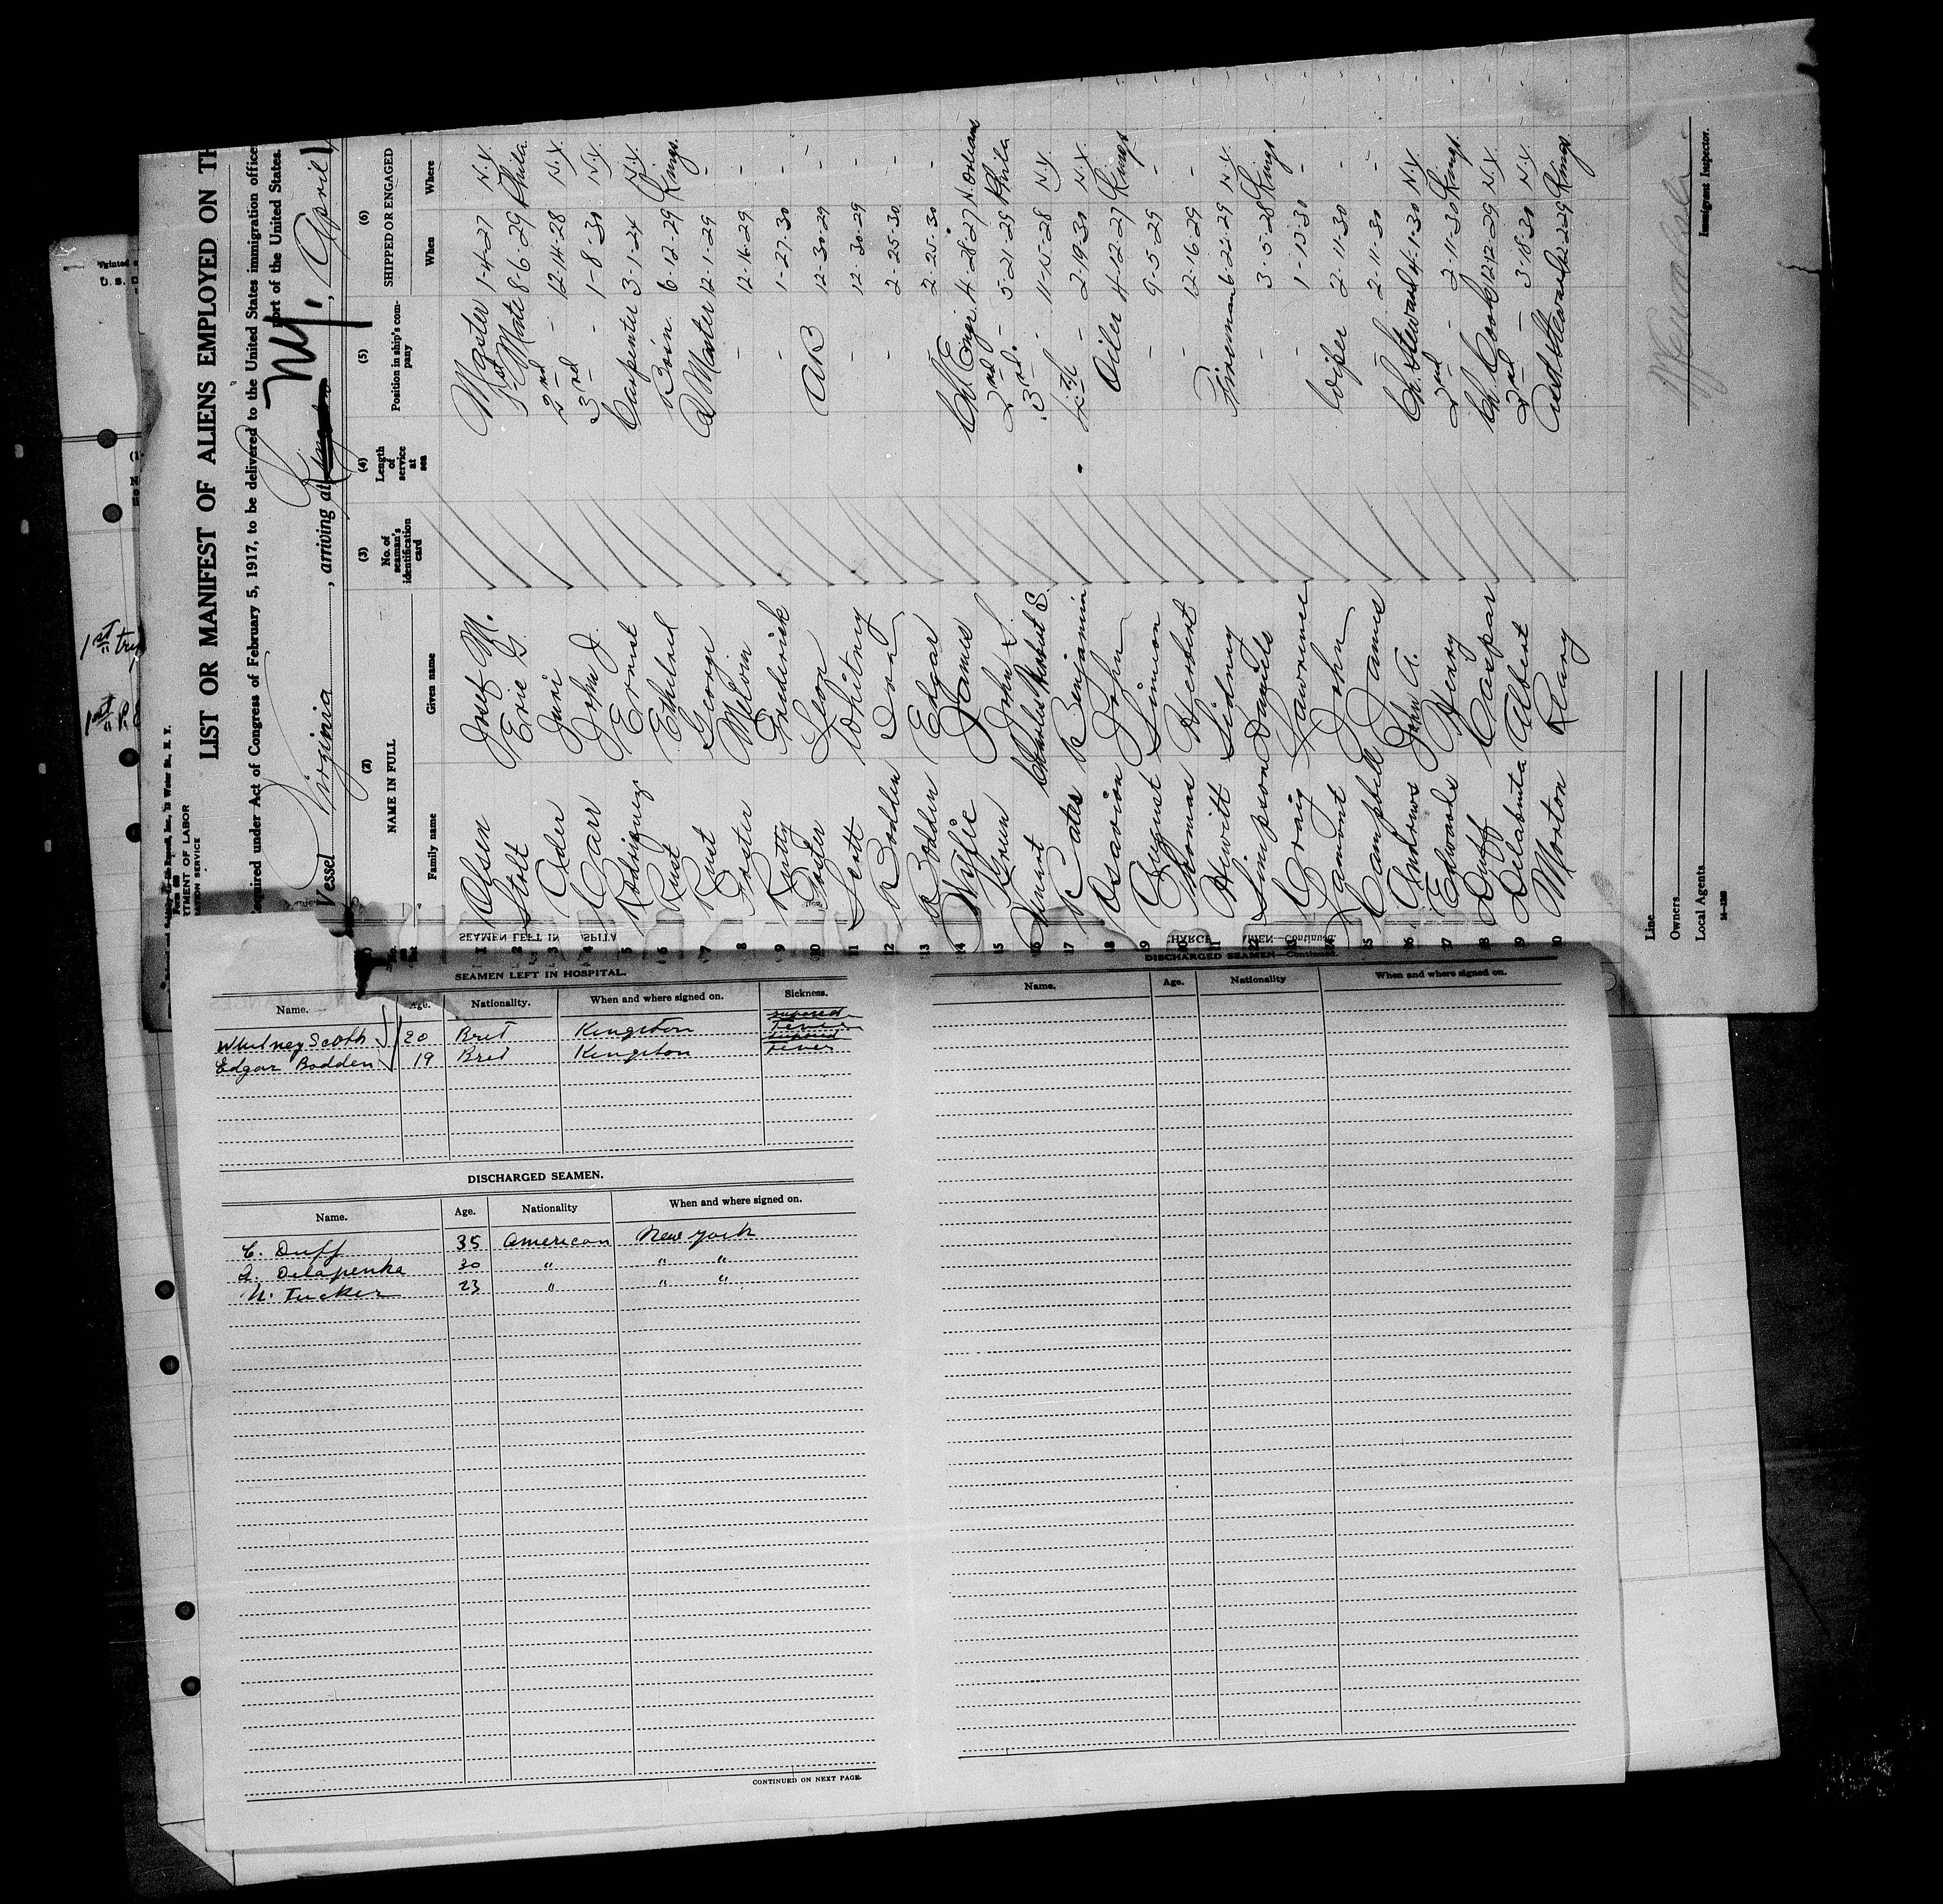 LIST OR MANIFEST OF ALIENS EMPLOYED ON TH
Required under Act of Congress of February 5, 1917, to be delivered to the United States immigration office
port of the United States.
Vessel Virginia, arriving at N.Y., April
(2) NAME IN FULL
Family name Given name
(3) No. of seaman's identification card
(4) Length of service at sea
(5) Position in ship's company
(6) SHIPPED OR ENGAGED
When Where
1 Olsen Josef M. Master 1-4-27 N.Y.
2 Stolt Eric G. 1st Mate 8-6-29 Phila.
3 Oder Juri 2nd - 12-14-28 N.Y.
4 Carr John J. 3rd - 1-8-30 N.Y.
5 Rodriguez Ernest Carpenter 3-1-24 N.Y.
6 Rust Ethelred Bosn. 6-12-29 Kings.
7 Rust George Q Master 12-1-29 -
8 Foster Melvin - 12-16-29 -
9 Frederick - 1-27-30 -
10 Foster Leon AB 12-30-29 -
11 Scott Whitney - 12-30-29 -
12 Bodden - 2-25-30 -
13 Bodden Edgar 2-25-30 -
14 Wyllie James Ch. Engr. 4-28-27 N. Orleans
15 Green John S. 2nd - 5-21-29 Phila
16 Charles Herbert S. 3rd - 11-15-28 N.Y.
17 Bates Benjamin - 2-19-30 N.Y.
18 Osavion John Oiler 4-12-27 Kings
19 August Simion - 9-5-29 -
20 Thomas Herbert - 12-16-29 -
21 Hewitt Sidney Fireman 6-22-29 N.Y.
22 Simpson Daniels - 3-5-28 Kings.
23 Craig Lawrence - 1-13-30 -
24 Lamont John Wiper 2-11-30 -
25 Campbell James - 2-11-30 -
26 Andrews John A. Ch. Steward 4-1-30 N.Y.
27 Edwards Henry 2nd - 2-11-30 Kings.
28 Duff Caspar Ch. Cook 12-12-29 N.Y.
29 Albert 2nd - 3-18-30 N.Y.
30 Morton 12-2-29 Kings
Line
Owners
Local Agents
Immigrant Inspector.
SEAMEN LEFT IN HOSPITAL.
Name. Age. Nationality. When and where signed on. Sickness.
Whitney Scoth 20 Brit Kingston
Edgar Bodden 19 Brit Kingston
DISCHARGED SEAMEN.
Name. Age. Nationality When and where signed on.
C. Duff 35 American New York
A. Delapenha 30 " " "
N. Tucker 23 " " "
CONTINUED ON NEXT PAGE.
DISCHARGED SEAMEN—Continued.
Name. Age. Nationality When and where signed on.